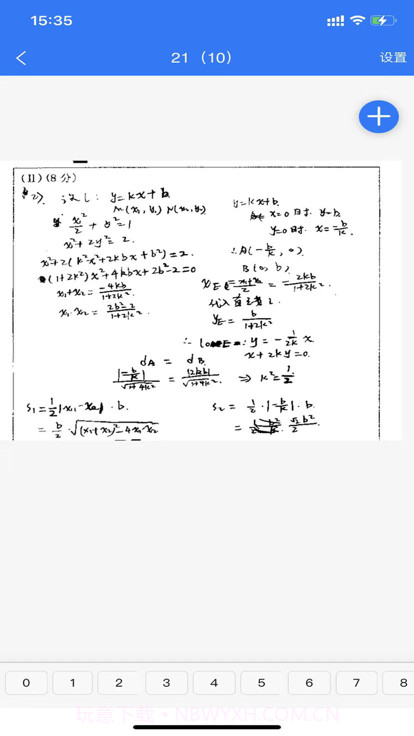 15:35
21（10） 设置
(II)(8分)
设 l: y=kx+b
M(x₁, y₁) N(x₂, y₂)
x²/2 + y²=1
x²+2y²=2.
x²+2(k²x²+2kbx+b²)=2
(1+2k²)x²+4kbx+2b²-2=0
x₁+x₂= -4kb/1+2k²
x₁·x₂= 2b²-2/1+2k²
y=kx+b
x=0时 y=b
y=0时 x=-b/k
∴A(-b/k, 0)
B(0, b)
x_E = x₁+x₂/2 = -2kb/1+2k²
y_E = b/1+2k²
y= -1/2k x
x+2ky=0.
d_A = d_B
|-b/k|/√1+4k² = |2kb|/√1+4k² ⇒ k²=1/2
S₁=1/2|x₁-x₂|·b
= b/2·√(x₁+x₂)²-4x₁x₂
S₂ = 1/2·|-b/k|·b
= √2b²/2
0 1 2 3 4 5 6 7 8
玩意下载·NBWYXH.COM.CN